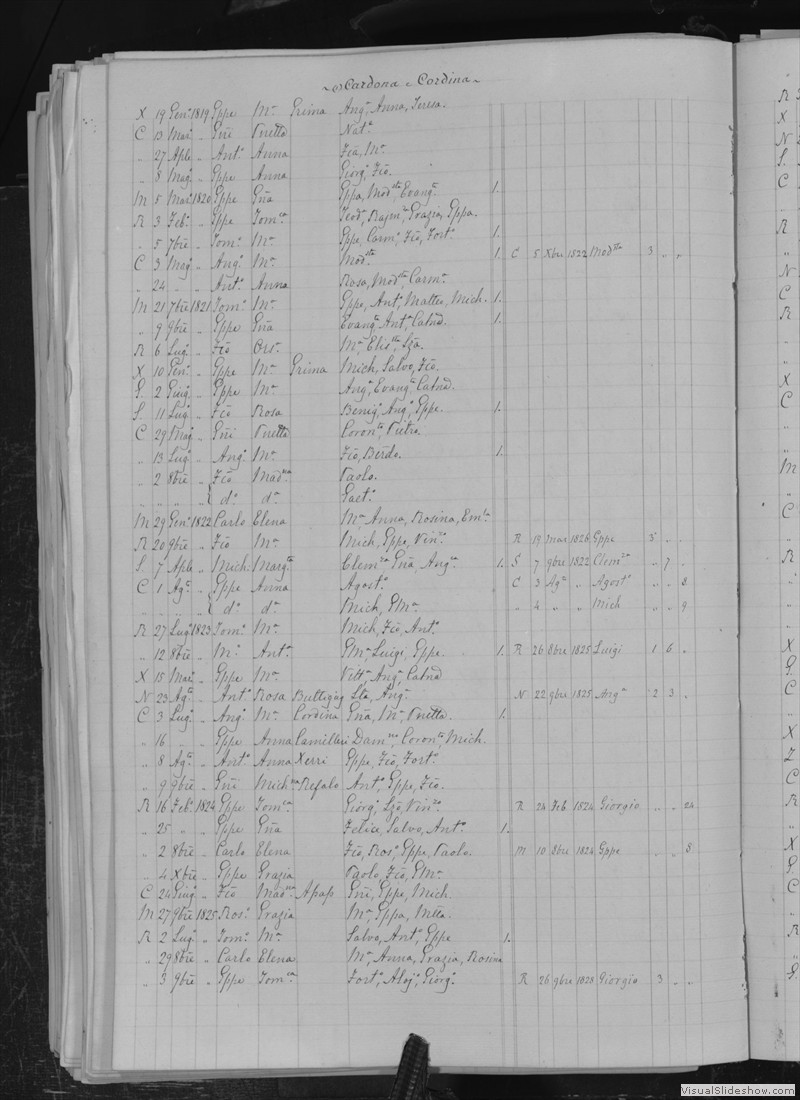 Cardona Cordina
X 19 Genº 1819 Gppe Mª Grima Angº, Anna, Teresa.
C 13 Mar „ Gñi Vnetta Natª
„ 27 Aple „ Antº Anna Fcã, Mª
„ 8 Magº „ Gppe Anna Giorgº, Fcõ.
M 5 Mar 1820 Gppe Gña Gppa, Modsta, Evangª 1.
R 3 Febº „ Gppe Tomca Teodª, Rajmª, Grazia, Gppa.
„ 5 7bre „ Tomº Mª Gppe, Carmº, Fcõ, Fortº 1.
C 3 Magº „ Angº Mª Modsta 1. C 5 Xbre 1822 Modsta 3 „ „
„ 24 „ „ Antº Anna Rosa, Modsta, Carmª
M 21 7bre 1821 Tomº Mª Gppe, Antº, Matteo, Mich. 1.
„ 9 9bre „ Gppe Gña Evangª, Antª, Catnd. 1.
R 6 Lugº „ Fcõ Orsª Mª, Elista, Lzã.
X 10 Genº „ Gppe Mª Grima Mich, Salvo, Fcõ
G. 2 Giugº „ Gppe Mª Angª, Evangª, Catnd.
S. 11 Lugº „ Fcõ Rosa Benigº, Angº, Gppe. 1.
C 29 Magº „ Gñi Vnetta Coronta, Pietra.
„ 13 Lugº „ Angº Mª Fcõ, Berdo. 1.
„ 2 8bre „ Fcõ Madna Paolo.
„ „ „ „ dº dª Gaetº
M 29 Genº 1822 Carlo Elena Mª, Anna, Rosina, Emla
R 20 9bre „ Fcõ Mª Mich, Gppe, Vinzo R 19 Mar 1826 Gppe 3 „ „
S. 7 Aple „ Mich. Margta Clemza, Gña, Angª 1. S 7 9bre 1822 Clemza „ 7 „
C 1 Agto „ Gppe Anna Agostº C 3 Agto „ Agostº „ „ 8
„ „ „ „ dº dª Mich, GMª „ 4 „ „ Mich „ „ 9
R 27 Lugº 1823 Tomº Mª Mich, Fcõ, Antº
„ 12 8bre „ Mº Antª GMª, Luigi, Gppe. 1. R 26 8bre 1825 Luigi 1 6 „
X 15 Mar „ Gppe Mª Vittª, Angª, Catnd
N 23 Agto „ Antº Rosa Buttigieg Lza, Angª N 22 9bre 1825 Angª 2 3 „
C 3 Lugº „ Angº Mª Cordina Gña, Mª, Vnetta. 1.
„ 16 „ „ Gppe Anna Camilleri Damno, Coronto, Mich.
„ 8 Agto „ Antº Anna Xerri Gppe, Fcõ, Fortº
„ 9 9bre „ Gñi Michna Refalo Antº, Gppe, Fcõ.
R 16 Febº 1824 Gppe Tomca Giorgº, Lzõ, Vinzo R 24 Feb. 1824 Giorgio „ „ 24
„ 25 „ „ Gppe Gña Felice, Salvo, Antº 1.
„ 2 8bre „ Carlo Elena Fcõ, Rosº, Gppe, Paolo. M 10 8bre 1824 Gppe „ „ 8
„ 4 Xbre „ Gppe Grazia Paolo, Fcõ, GMª
C 24 Giugº „ Fcõ Madna Apap Gñi, Gppe, Mich.
M 27 9bre 1825 Rosº Grazia Mª, Gppa, Mtta.
R 2 Lugº „ Tomº Mª Salvo, Antº, Gppe 1.
„ 29 8bre „ Carlo Elena Mª, Anna, Grazia, Rosina
„ 3 9bre „ Gppe Tomca Fortº, Alojº, Giorgº R 26 9bre 1828 Giorgio 3 „ „
VisualSlideshow.com